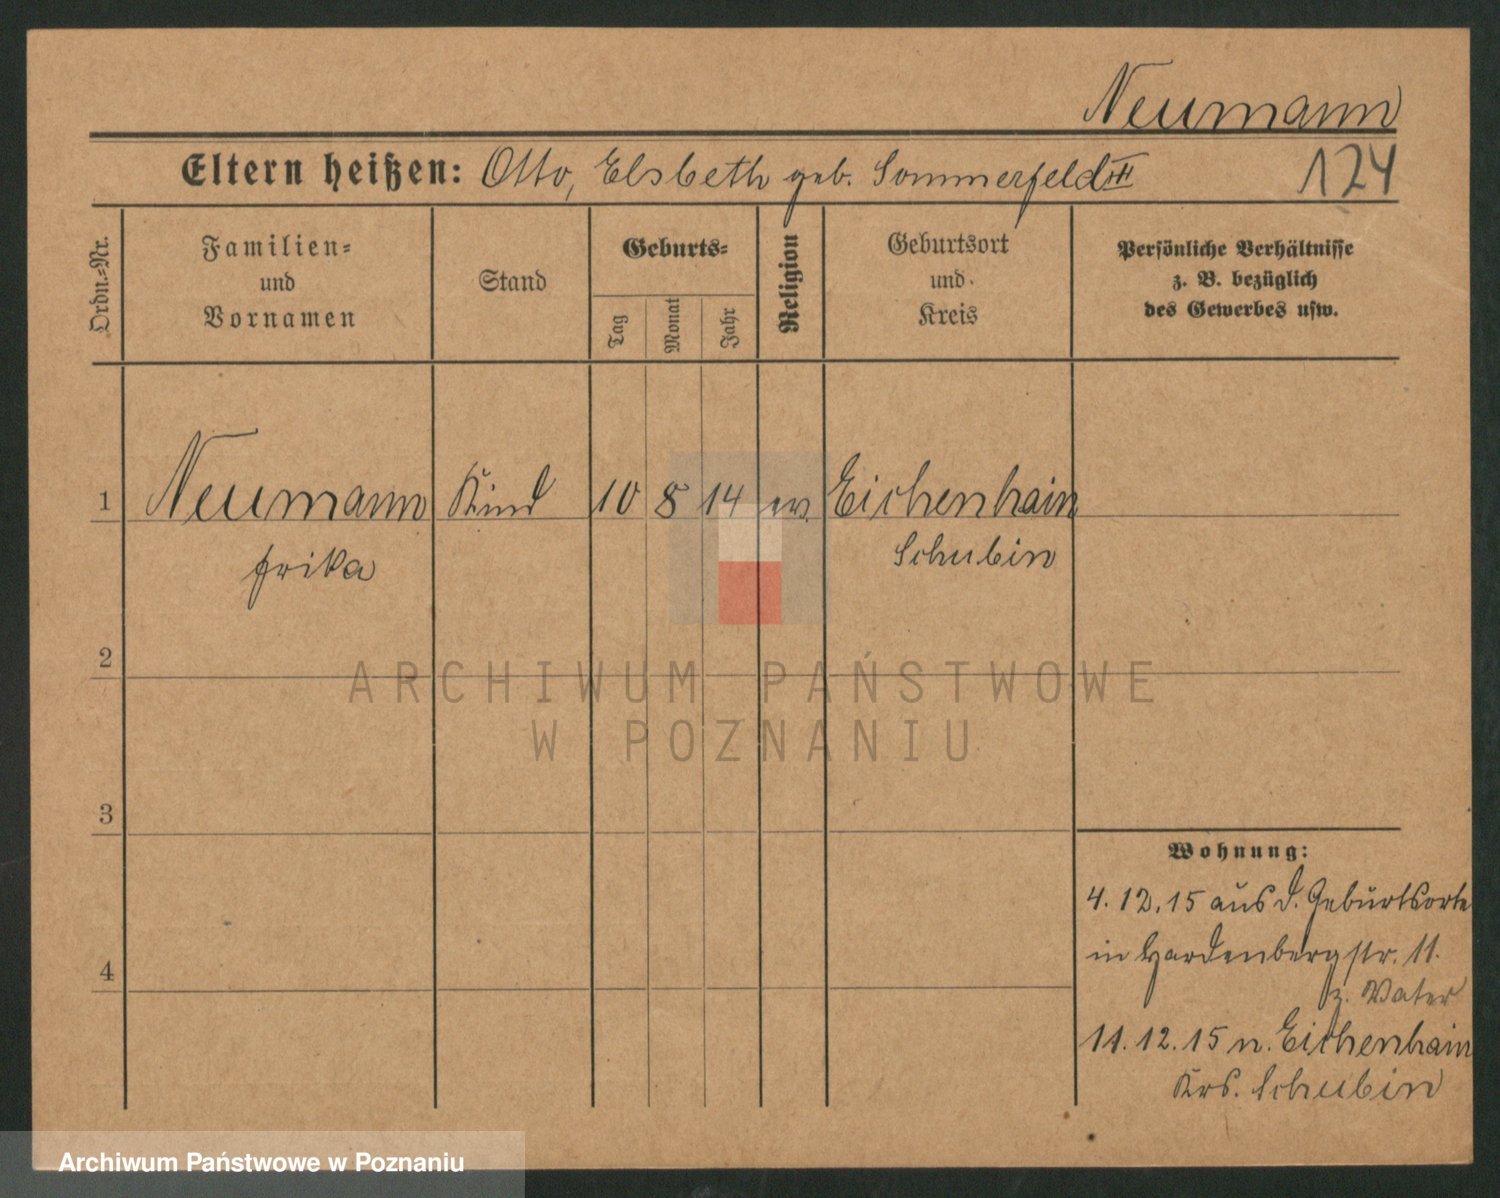 Neumann
Eltern heißen: Otto, Elsbeth geb. Sommerfeld
124
Ordn.-Nr.
Familien- und Vornamen
Stand
Geburts-
Tag
Monat
Jahr
Religion
Geburtsort und Kreis
Persönliche Verhältnisse
z. B. bezüglich
des Gewerbes usw.
1 Neumann Kind 10 8 14 ev. Eichenhain
Erika Schubin
2
3
4
Wohnung:
4. 12. 15 aus d. Geburtsorte
in Hardenbergstr. 11.
z. Vater
11. 12. 15 n. Eichenhain
Krs. Schubin
ARCHIWUM PAŃSTWOWE
W POZNANIU
Archiwum Państwowe w Poznaniu